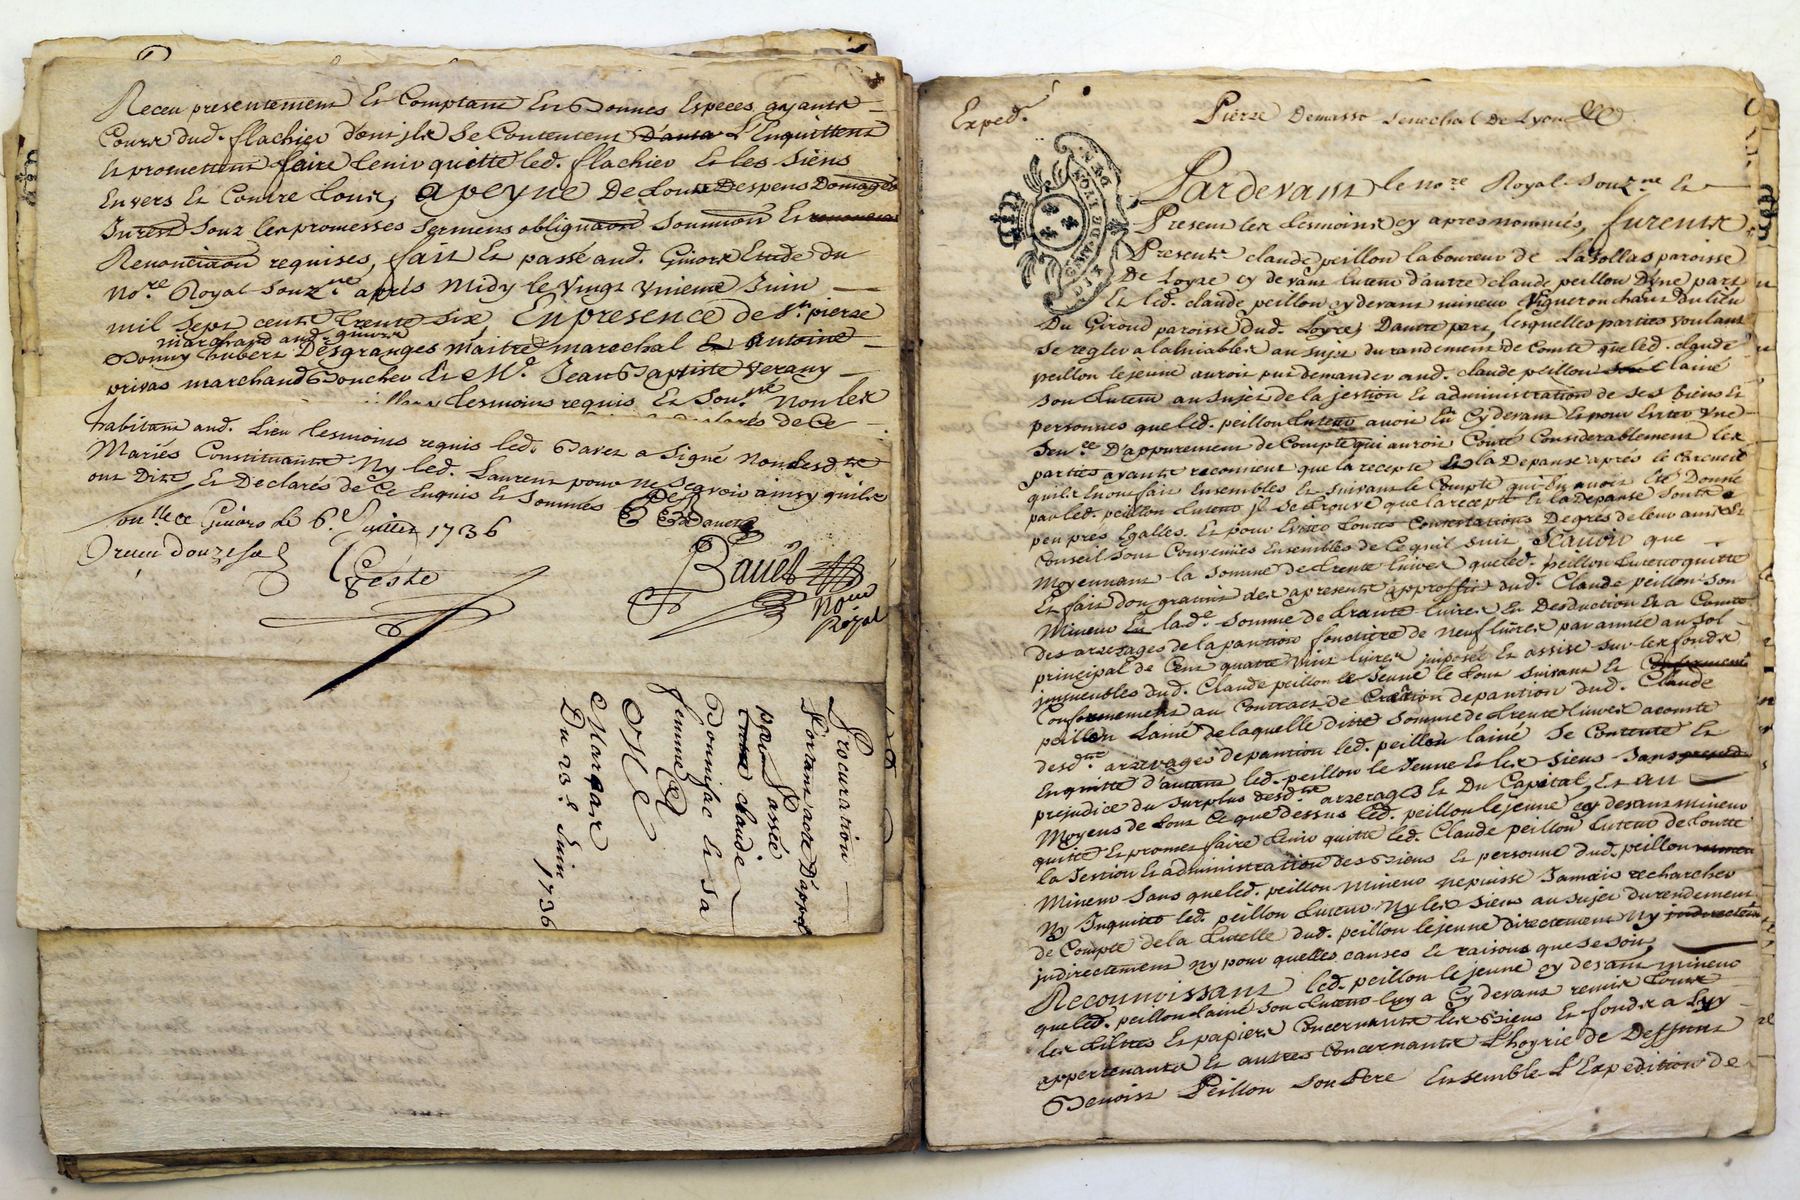 Receu presentement Et Comptant En Bonnes Especes ayants
Cours dud. flachier dont ils Se Contentent L'Enquittent
Et promettent faire tenir quitte led. flachier Et les Siens
Envers Et Contre tous, a peyne De tous Despens Domages
Sous les promesses Sermens obligaaon Soumiaon Et
Renonciaon requises, fait Et passé aud. Givors Etude du
No.re Royal Souz.ne aprés Midy le Vingt Vnieme Juin
mil Sept cents trente Six En presence de S.r pierre
marchand aud. givors
Desgranges Maitre marechal Et Antoine
privas marchand Boucher Et M.e Jean Baptiste Verany
tesmoins requis Et Non les
de Ce
habitant aud. Lieu tesmoins requis led. Bavet a Signé Non lesd.
Mariés Constituants Ny led. Laurent pour ne Sçavoir ainsy quils
ont Dit Et Declarés de Ce Enquis Et Sommés
Con.llé a Givors le 6.e Juillet 1736
receu douze sols
Geste
Bavet
No.re
Royal
Procuration
Portant acte D'appel
par
Passée
claude
Bonnifac Et Sa
femme
A
Me
Margar
Du 23.e Juin 1736
Exped.
Pierre Demasso Senechal De Lyon
GEN. DE LION
Pardevant le No.re Royal Souz.ne Et
Present les tesmoins cy apres nommés, furents
Presents claude peillon laboureur de Lasollas paroisse
De Loyre cy devant tuteur d'autre claude peillon D'vne part
Et led. claude peillon cy devant mineur Vigneron habitant du lieu
Du Giroud paroisse dud. Loyre, D'autre part, lesquelles parties Voulant
Se regler a lahiable au Sujet du randement de Comte que led. claude
peillon le jeune auroit put demander aud. claude peillon Lainé
Son tuteur au Sujet de la jestion Et administration de Ses biens Et
personnes que led. peillon tuteur avoit Eü Cy devant Et pour Eviter Vne
Sen.ce D'appurement de Compte qui auroit Couté Considerablement les
parties ayants reconnut que la recepte Et la Depanse aprés le Carcueil
quils En ont fait Ensembles Et Suivant le Compte qui En avoit Eté Donné
par led. peillon tuteur jl Se trouve que la recepte Et la Depanse Sonts a
peu prés Egalles, Et pour Eviter toutes Contestations De gres de leur amis Et
Conseil Sont Convenües Ensembles de Ce quil Suit Scavoir que
Moyennant la Somme de trente livres que led. peillon tuteur quitte
Et fait don gratuit des a present au proffit dud. Claude peillon Son
Mineur lad.e Somme de trante livres En Desduction Et a Comte
des arrerages de la pantion fonciere de Neuf livres par année au Sol
principal de Cent quatre vint livres jmposée Et assise Sur les fonds
jmmeubles dud. Claude peillon le Jeune le tout Suivant Et
Conformement au Contract de Creation de pantion dud. Claude
peillon Lainé de laquelle ditte Somme de trente livres a comte
desd. arrerages de pantion led. peillon lainé Se Contente Et
Enquitte d'autant led. peillon le Jeune Et les Siens Sans
prejudice du Surplus desd. arrerages Et Du Capital, Et au
Moyens de tout Ce que dessus led. peillon le jeune cy devant mineur
quitte Et promet faire tenir quitte led. Claude peillon tuteur de toutte
la Jestion Et administration des Biens Et personne dud. peillon
Mineur Sans que led. peillon Mineur ne puisse Jamais rechercher
Ny Inquiter led. peillon tuteur Ny les Siens au Sujet du rendement
de Compte de la tutelle dud. peillon le jeune directement Ny
jndirectement ny pour quelles causes Et raisons que Se Soit,
Reconnoissant led. peillon le jeune cy devant mineur
que led. peillon Lainé Son tuteur luy a Cy devant remis tous
les tiltres Et papiers Concernants les Biens Et fonds a luy
appartenants Et autres Concernants L'hoyrie de Deffunt
Benoist Peillon Son Pere Ensemble L'Expedition de